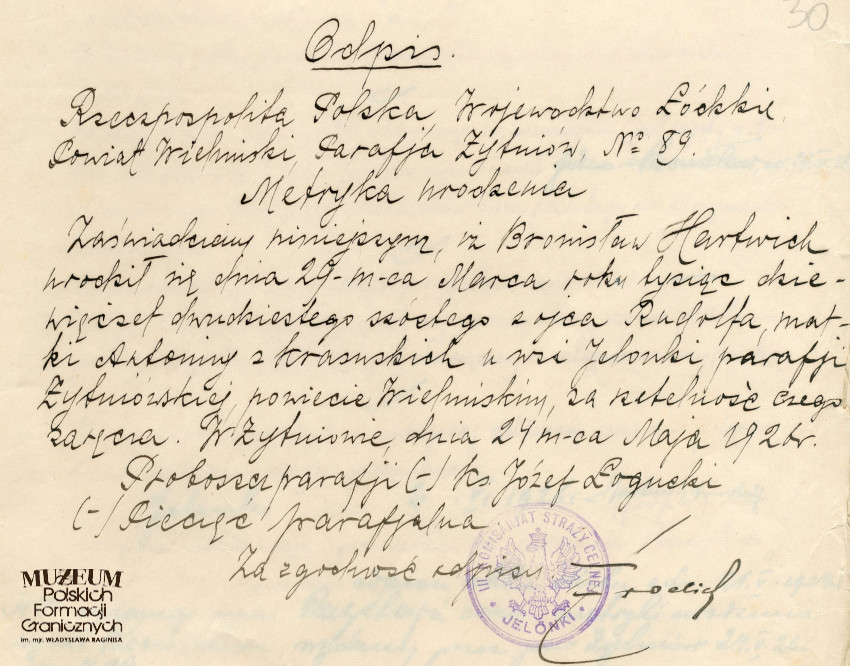 30
Odpis.
Rzeczpospolita Polska, Województwo Łódzkie,
Powiat Wieluński, Parafja Żytniów, № 89.
Metryka urodzenia
Zaświadczam niniejszym, iż Bronisław Hartwich
urodził się dnia 29-m-ca Marca roku tysiąc dzie-
więćset dwudziestego szóstego z ojca Rudolfa, mat-
ki Antoniny z Krasuskich u wsi Jelonki, parafji
Żytniowskiej, powiecie Wieluńskim, za rzetelność czego
zaręcza. W Żytniowie, dnia 24 m-ca Maja 1926r.
Proboszcz parafji (-) ks. Józef Łogucki
(-) Pieczęć parafjalna
Za zgodność odpisu
III KOMISARJAT STRAŻY CELNEJ
JELONKI
MUZEUM
Polskich
Formacji
Granicznych
im. mjr. WŁADYSŁAWA RAGINISA